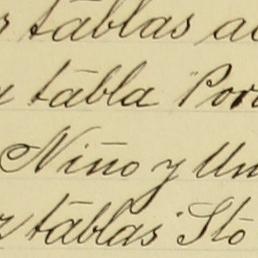 tablas
tabla
Niño y Un
tablas "Sto